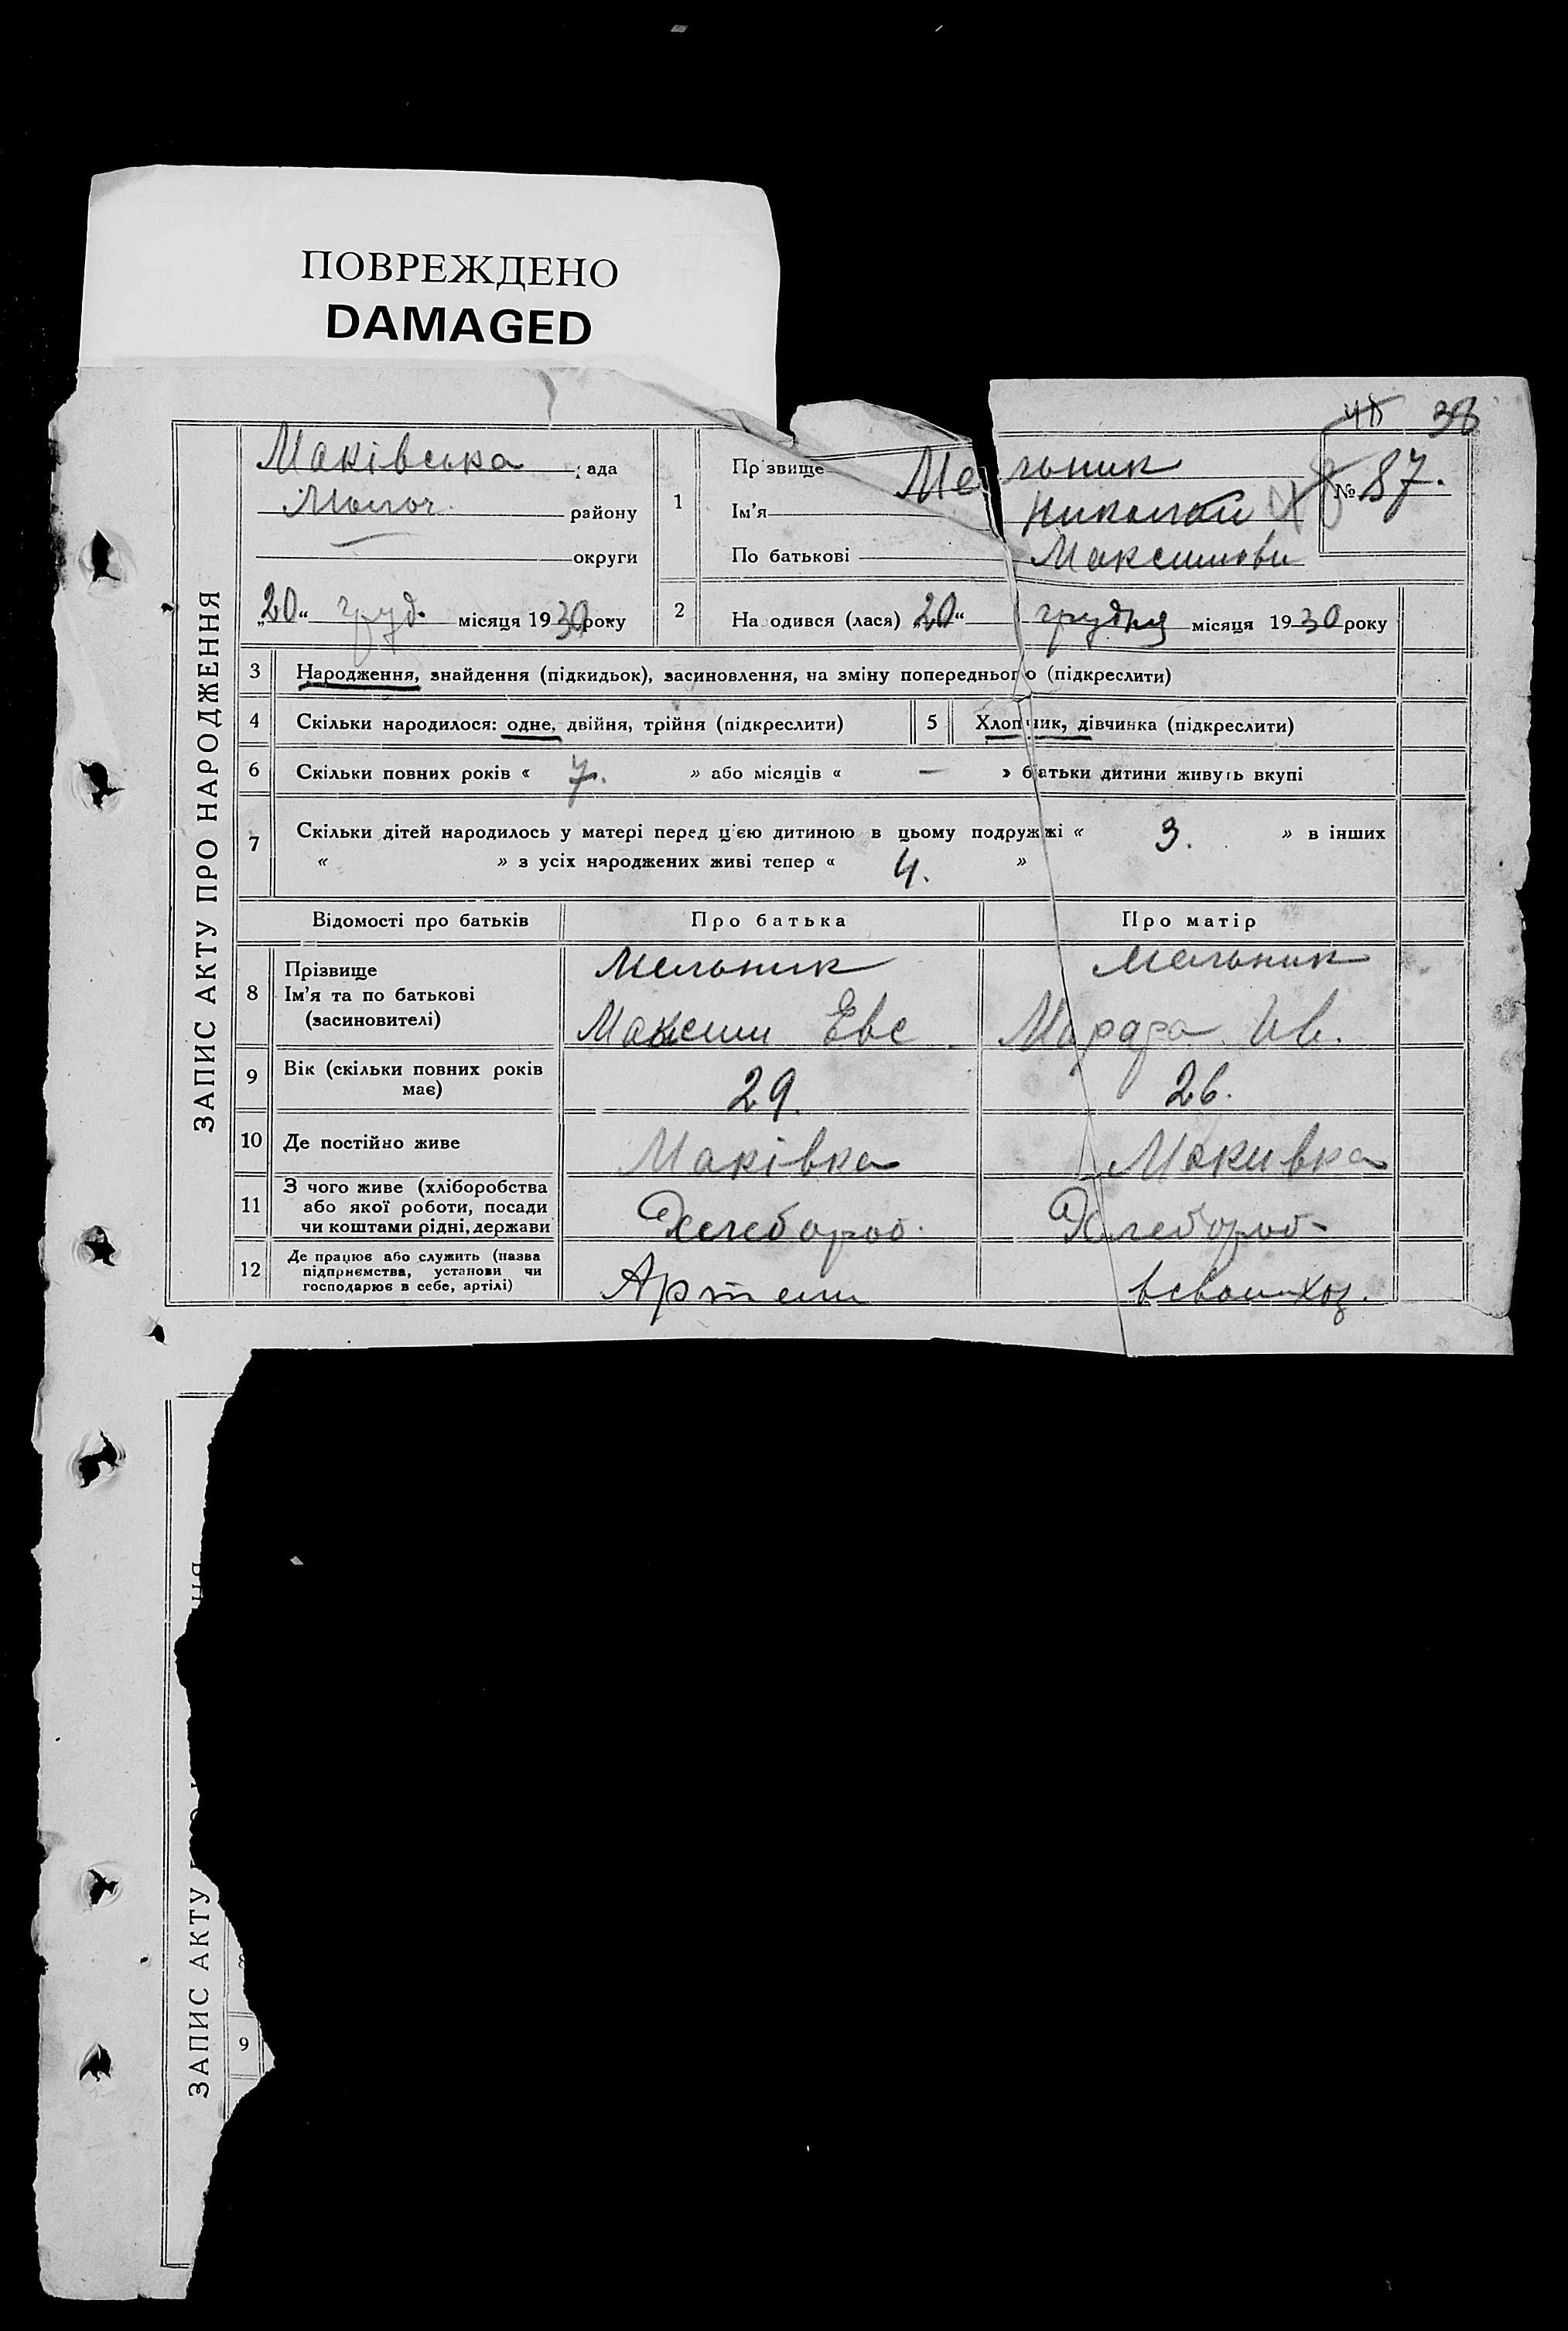 ПОВРЕЖДЕНО
DAMAGED
38
Маківська ада
району
округи
„20“ груд. місяця 1930 року
ЗАПИС АКТУ ПРО НАРОДЖЕННЯ
1 Пр звище Мельник
Ім'я Николай
По батькові Максимови
№ 87.
2 На одився (лася) „20“ грудня місяця 1930 року
3 Народження, знайдення (підкидьок), засиновлення, на зміну попереднього (підкреслити)
4 Скільки народилося: одне, двійня, трійня (підкреслити) 5 Хлопчик, дівчинка (підкреслити)
6 Скільки повних років « 7. » або місяців « — » батьки дитини живуть вкупі
7 Скільки дітей народилось у матері перед цією дитиною в цьому подружжі « 3. » в інших
« » з усіх народжених живі тепер « 4. »
Відомості про батьків Про батька Про матір
8 Прізвище Мельник Мельник
Ім'я та по батькові
(засиновителі) Максим Евс Ив.
9 Вік (скільки повних років має) 29. 26.
10 Де постійно живе Маківка Макивка
11 З чого живе (хліборобства
або якої роботи, посади
чи коштами рідні, держави Хлебороб. Хлебороб-
12 Де працює або служить (назва
підприємства, установи чи
господарює в себе, артілі) Артели в своим хоз.
ЗАПИС АКТУ
ня
9